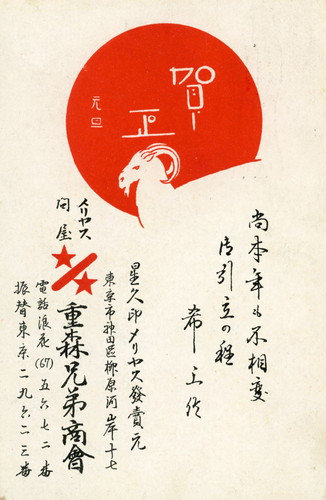 賀正
元旦
尚本年も不相変
御引立の程
希上候
星久印メリヤス發賣元
東京市神田區柳原河岸十七
メリヤス
問屋
重森兄弟商會
電話浪花(67)五六七二番
振替東京二九六二三番